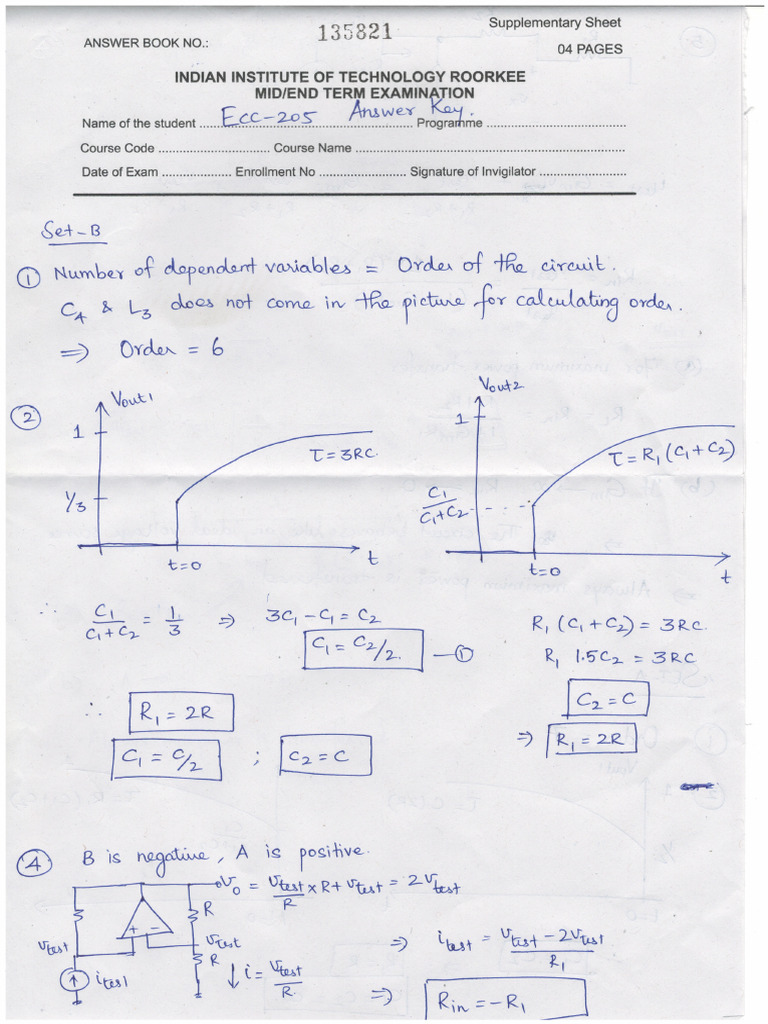 Supplementary Sheet
135821
ANSWER BOOK NO.:
04 PAGES
INDIAN INSTITUTE OF TECHNOLOGY ROORKEE
MID/END TERM EXAMINATION
Name of the student ECC-205 Answer Key. Programme
Course Code Course Name
Date of Exam Enrollment No Signature of Invigilator
Set-B
① Number of dependent variables = Order of the circuit.
C4 & L3 does not come in the picture for calculating order.
⇒ Order = 6
②
Vout1
1
τ = 3RC.
1/3
t=0
t
Vout2
1
τ = R1 (C1 + C2)
C1/(C1+C2)
t=0
t
∴ C1/(C1+C2) = 1/3 ⇒ 3C1 - C1 = C2
C1 = C2/2. —①
R1 (C1 + C2) = 3RC.
R1 1.5C2 = 3RC
C2 = C
⇒ R1 = 2R
∴ R1 = 2R
C1 = C/2 ; C2 = C
④ B is negative, A is positive.
v0 = vtest/R × R + vtest = 2vtest
R
+ -
vtest
vtest
R
itest
i = vtest/R.
⇒ itest = (vtest - 2vtest)/R1
⇒ Rin = -R1